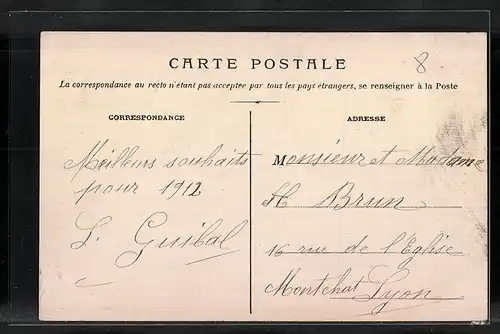 CARTE POSTALE
8
La correspondance au recto n'étant pas acceptée par tous les pays étrangers, se renseigner à la Poste
CORRESPONDANCE
Meilleurs souhaits
pour 1912
L. Guibal
ADRESSE
Monsieur et Madame
H Brun
16 rue de l'Eglise
Montchat Lyon